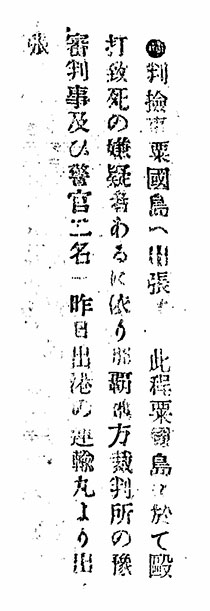 ●判撿事粟國島へ出張 此程粟國島に於て毆
打致死の嫌疑者あるに依り那覇地方裁判所の豫
審判事及ひ警官二名一昨日出港の運輸丸より出
張